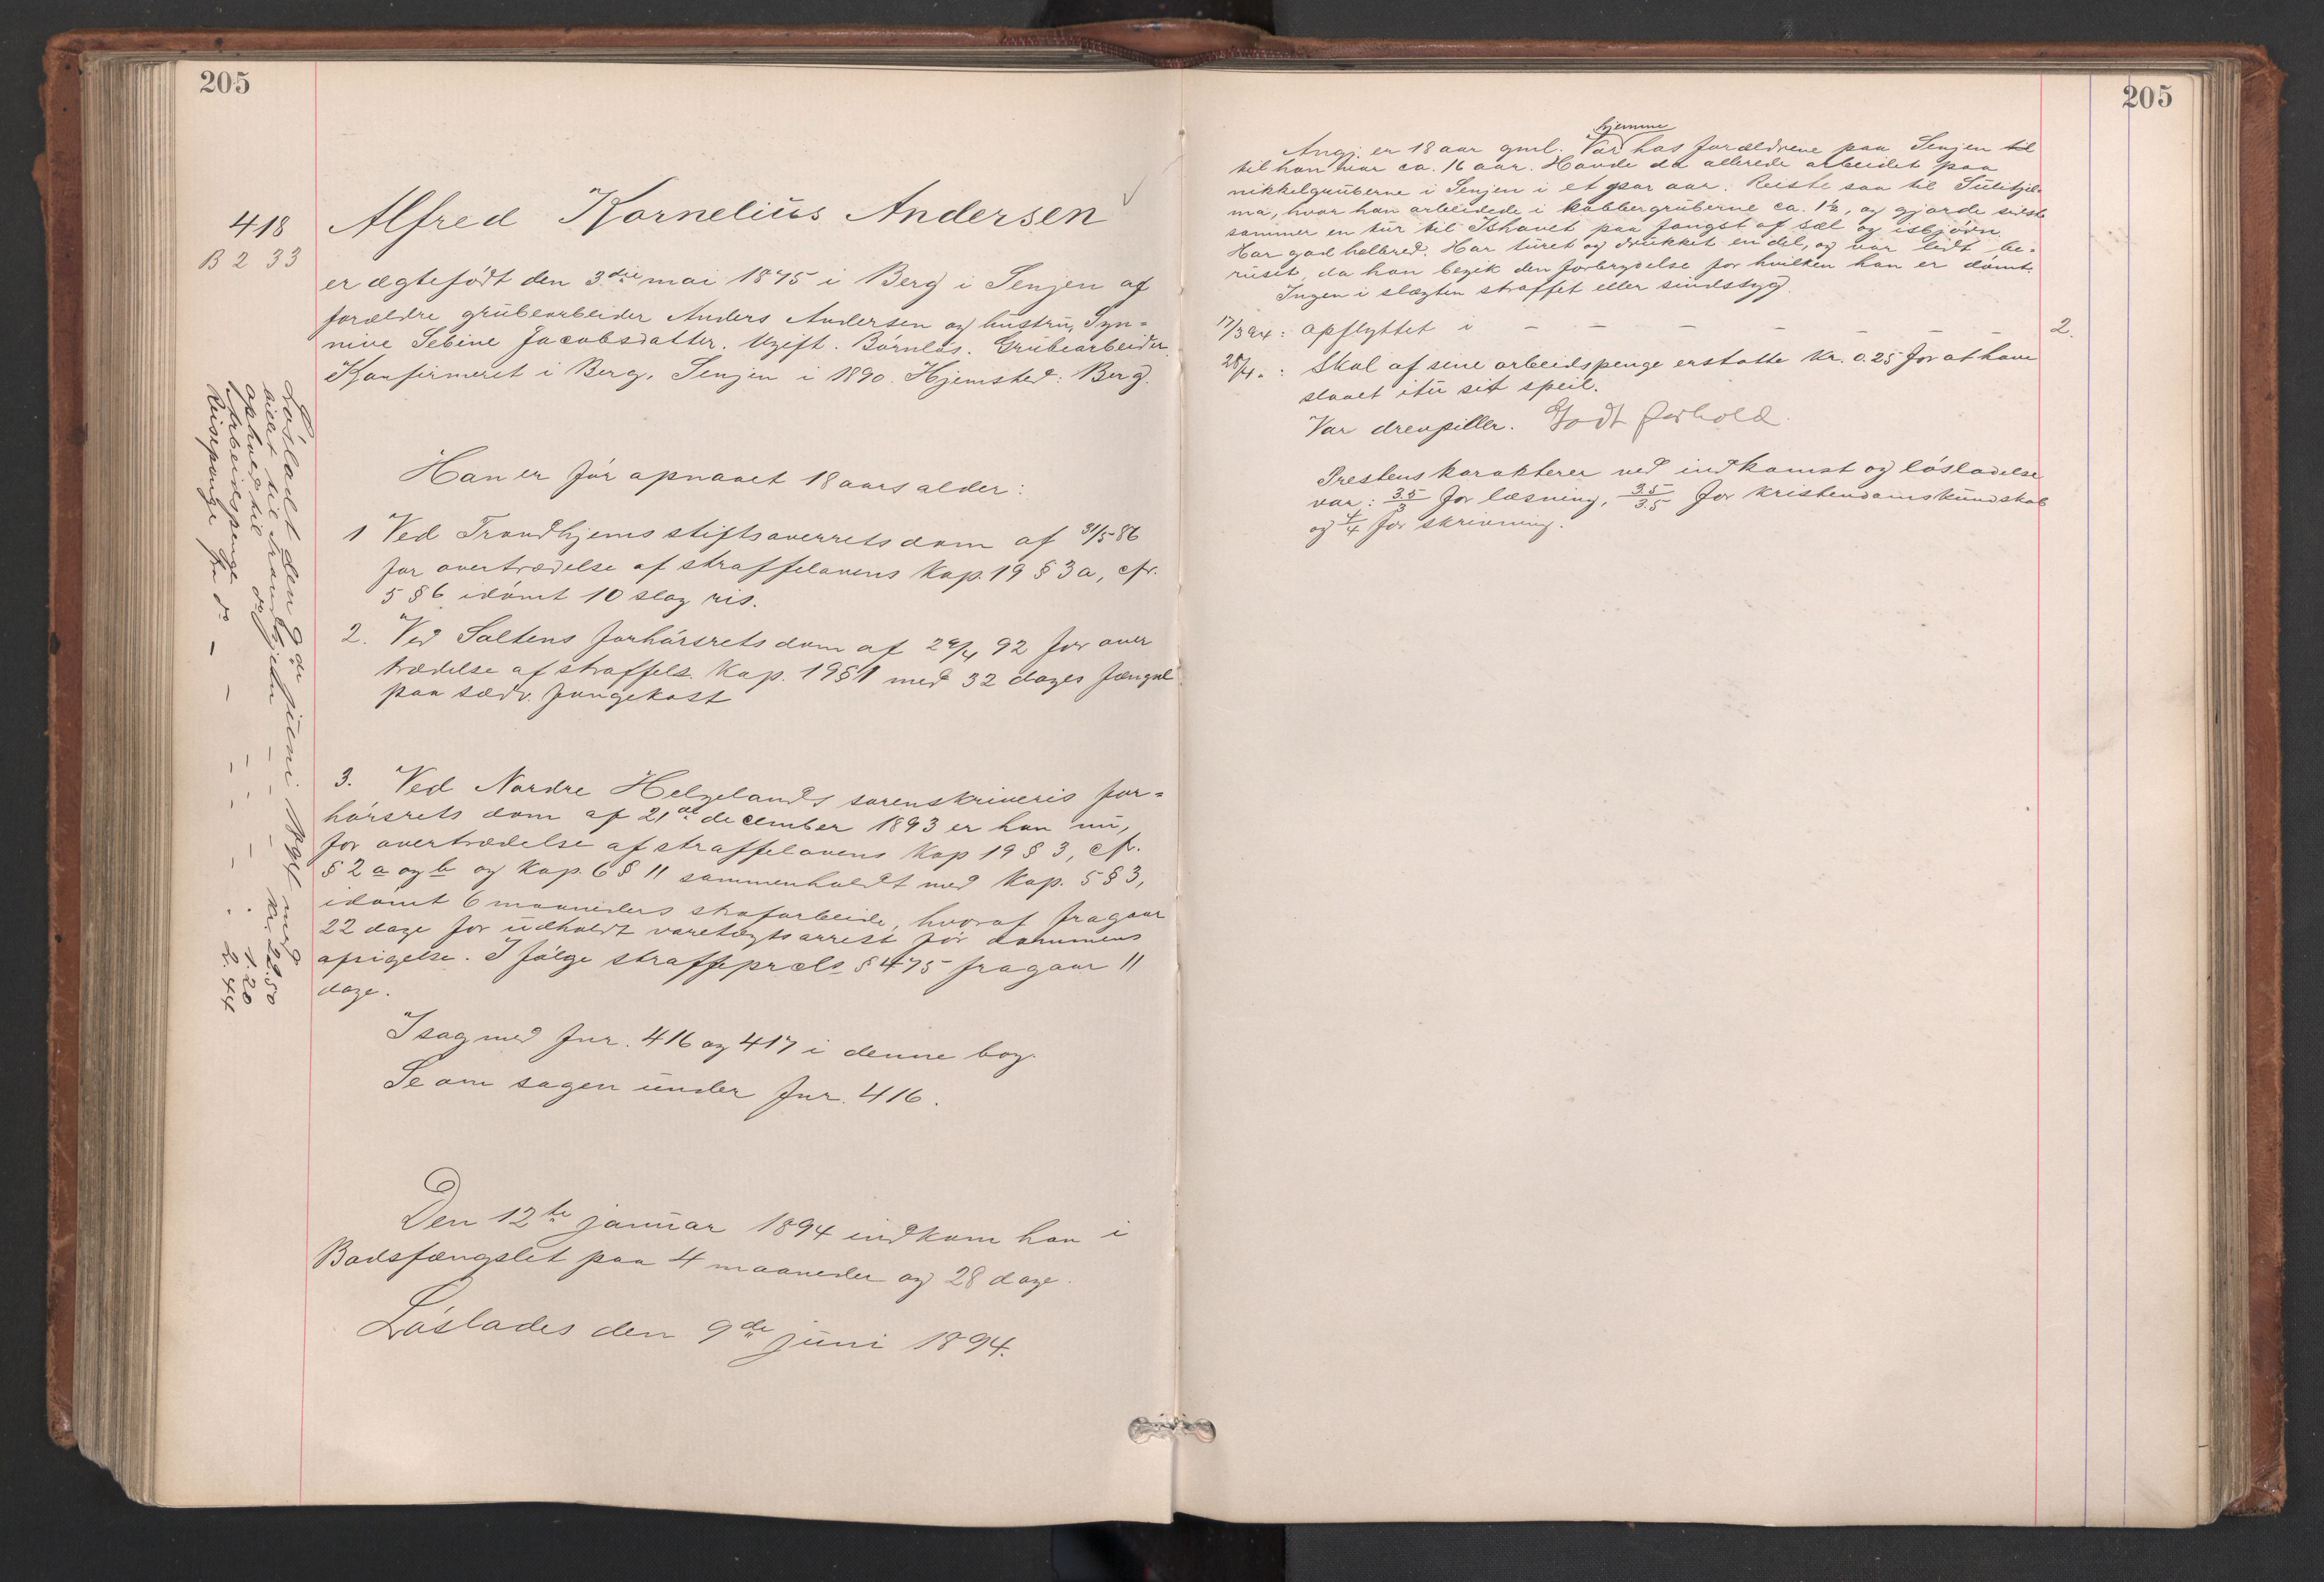 205
418
B 2 33
Alfred Kornelius Andersen
er ægtefødt den 3die mai 1875 i Berg i Senjen af
forældre grubearbeider Anders Andersen og hustru, Syn-
nive Sebine Jacobsdatter. Ugift. Børnløs. Grubearbeider.
Konfirmeret i Berg, Senjen i 1890. Hjemsted: Berg.
Han er før opnaaet 18 aars alder:
1 Ved Trondhjems stiftsoverretsdom af 31/5 86
for overtrædelse af straffelovens Kap. 19 § 3 a, cfr.
5 § 6 idømt 10 slag ris.
2. Ved Saltens forhørsrets dom af 29/4 92 for over
trædelse af straffels. Kap. 19 § 1 med 32 dages fængsel
paa sædv. fangekost
3. Ved Nordre Helgelands sorenskriveris for-
hørsrets dom af 21de december 1893 er han nu,
for overtrædelse af straffelovens Kap 19 § 3, cfr.
§ 2 a og b og Kap. 6 § 11 sammenholdt med Kap. 5 § 3,
idømt 6 maaneders strafarbeide, hvoraf fragaar
22 dage for udholdt varetægtsarrest før dommens
afsigelse. I følge straffeprcls § 475 fragaar 11
dage.
I sag med fnr. 416 og 417 i denne bog.
Se om sagen under fnr. 416.
Den 12te januar 1894 indkom han i
Bodsfængslet paa 4 maaneder og 28 dage.
Løslades den 9de juni 1894.
Løsladt den 9de juni 1894 med
billet til Trondhjem - - kr. 22.50
ophold til do - - - 1.20
Arbeidspenge - - - 2.44
Reisepenge fra do - - -
205
hjemme
Angj. er 18 aar gml. Var hos forældrene paa Senjen til
til han var ca. 16 aar. Havde da allerede arbeidet paa
nikkelgruberne i Senjen i et par aar. Reiste saa til Sulitjel-
ma, hvor han arbeidede i kobbergruberne ca. 1½, og gjorde sidste
sommer en tur til Ishavet paa fangst af sæl og isbjørn.
Har god helbred. Har turet og drukket endel, og var lidt be-
ruset, da han begik den forbrydelse for hvilken han er dømt.
Ingen i slægten straffet eller sindssyg.
17/3 94: opflyttet i - - - - - - 2.
28/4 ": Skal af sine arbeidspenge erstatte kr. 0.25 for at have
slaaet itu sit speil.
Var drevpiller. Godt forhold.
Prestens karakterer ved indkomst og løsladelse
var: 3.5/3 for læsning, 3.5/3.5 for kristendomskundskab
og 4/4 for skrivning.